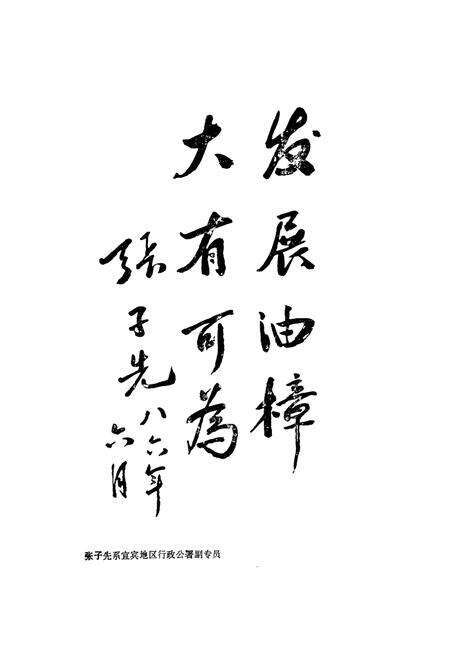 发展油樟
大有可為
張子先
八六年
六月
张子先系宜宾地区行政公署副专员